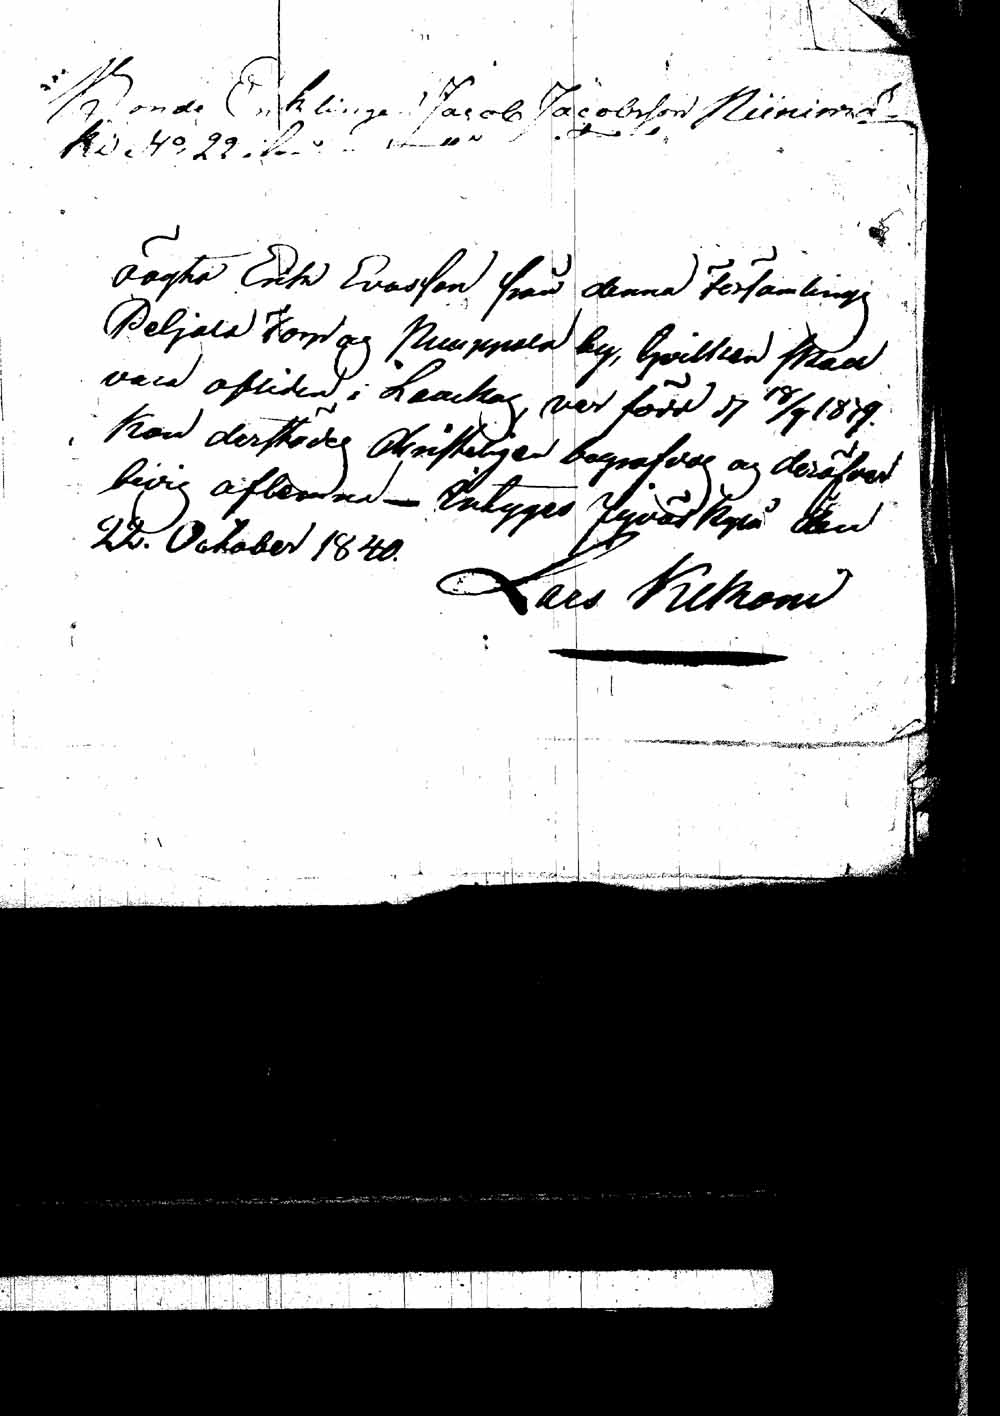 Bonde Enklingen Jacob Jacobsson Niinimä-
ki No 22.
oägta Erik Evasson från denna Församlings
Peljala Torp og Nuuppola by, hvilken skall
vara afliden i Laukas, var född d 18/9 1839.
Kan derstädes Christeligen begrafvas og deröfver
bevis aflemna — Intygas Jyväskylä den
22. October 1840.
Lars Kekoni